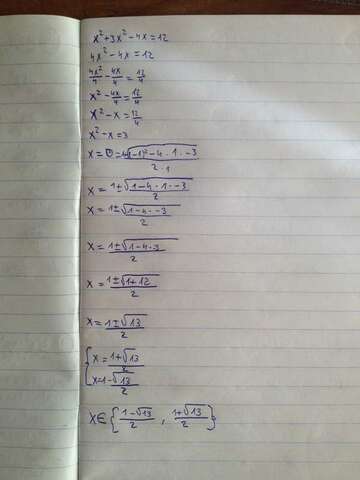 x²+3x²-4x=12
4x²-4x=12
4x²/4-4x/4=12/4
x²-4x/4=12/4
x²-x=12/4
x²-x=3
x=
x=1±√1-4·1·-3/2
x=1±√1-4·-3/2
x=1±√1-4·3/2
x=1±√1+12/2
x=1±√13/2
{x=1+√13/2
x=1-√13/2
x∈{1-√13/2, 1+√13/2}